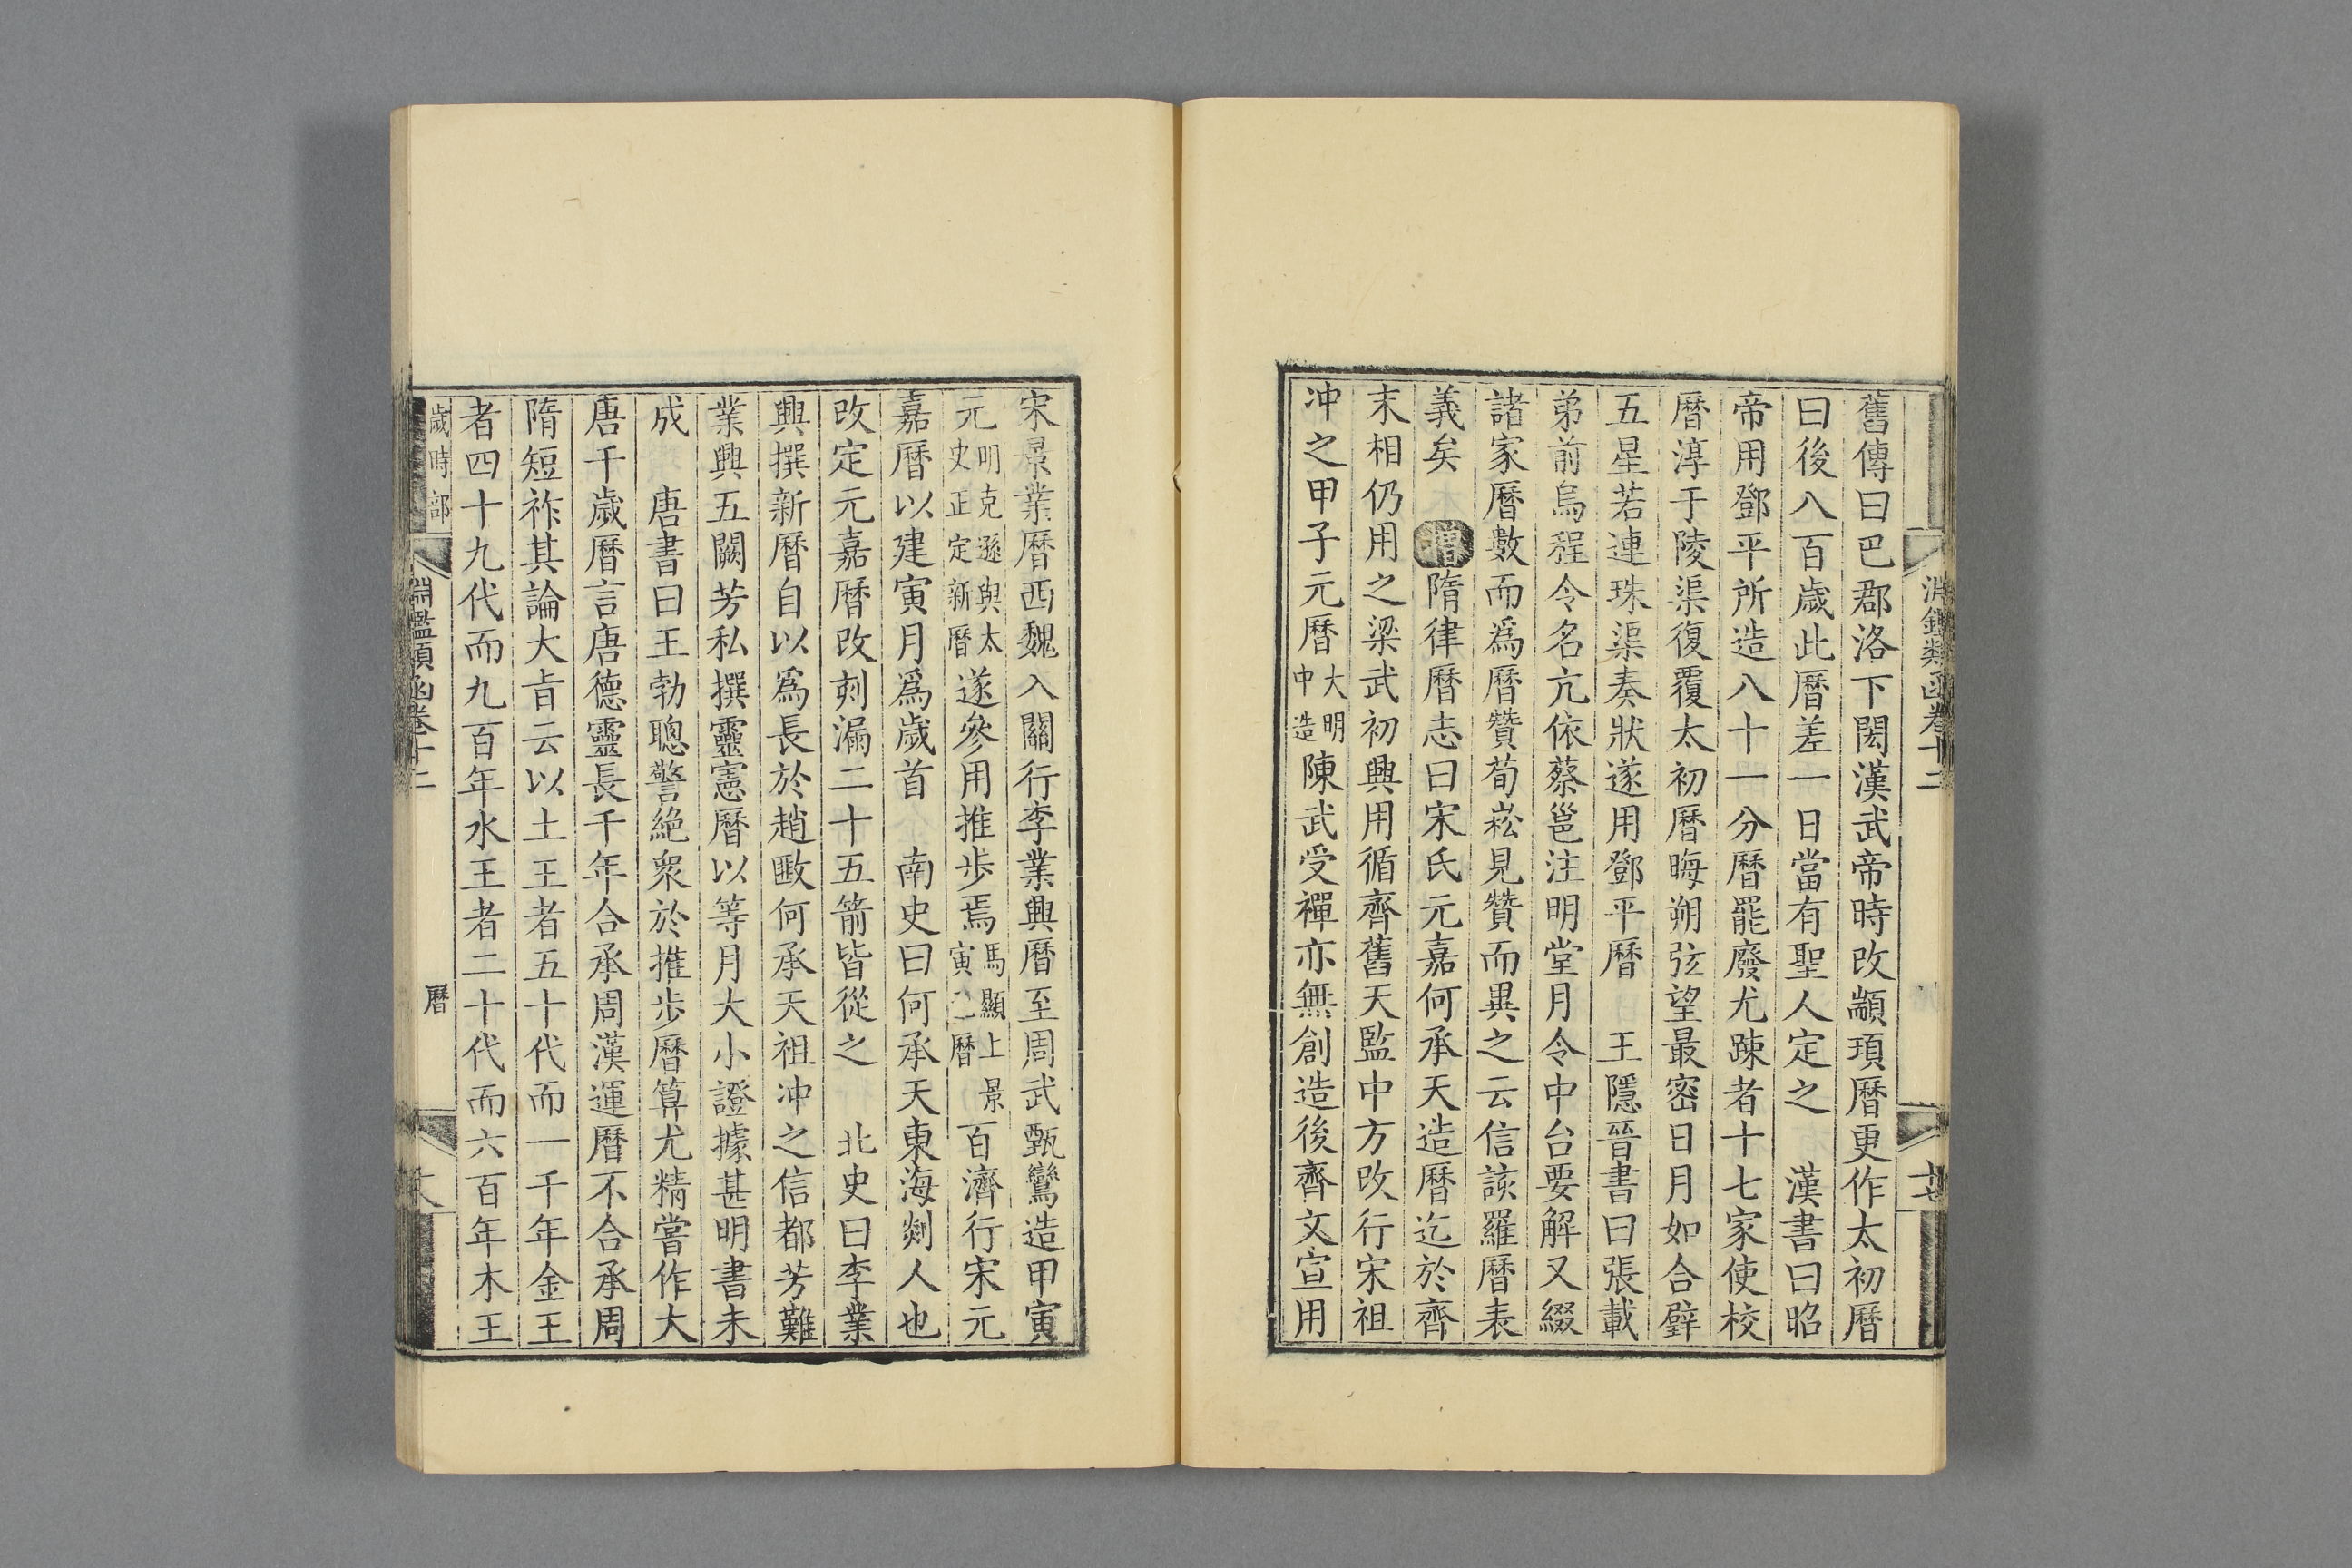 淵鑑類函卷十二
十七
舊傳曰巴郡洛下閎漢武帝時改顓頊曆更作太初曆
曰後八百歲此曆差一日當有聖人定之　漢書曰昭
帝用鄧平所造八十一分曆罷廢尤疎者十七家使校
曆淳于陵渠復覆太初曆晦朔弦望最密日月如合璧
五星若連珠渠奏狀遂用鄧平曆　王隱晉書曰張載
弟前烏程令名亢依蔡邕注明堂月令中台要解又綴
諸家曆數而爲曆贊荀崧見贊而異之云信該羅曆表
義矣　增隋律曆志曰宋氏元嘉何承天造曆迄於齊
末相仍用之梁武初興用循齊舊天監中方改行宋祖
冲之甲子元曆大明中造陳武受禪亦無創造後齊文宣用
宋景業曆西魏入關行李業興曆至周武甄鸞造甲寅
元明克遜與太史正定新曆遂參用推步焉馬顯上景寅之曆百濟行宋元
嘉曆以建寅月爲歲首　南史曰何承天東海剡人也
改定元嘉曆改刻漏二十五箭皆從之　北史曰李業
興撰新曆自以爲長於趙𢾺何承天祖冲之信都芳難
業興五闕芳私撰靈憲曆以等月大小證據甚明書未
成　唐書曰王勃聰警絕衆於推步曆算尤精嘗作大
唐千歲曆言唐德靈長千年合承周漢運曆不合承周
隋短祚其論大旨云以土王者五十代而一千年金王
者四十九代而九百年水王者二十代而六百年木王
歲時部
淵鑑類函卷十二
曆
十八